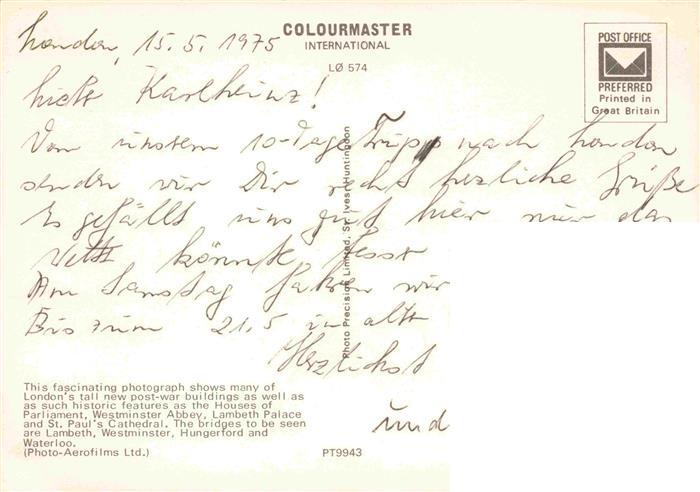 London, 15.5.1975
COLOURMASTER
INTERNATIONAL
LØ 574
POST OFFICE
PREFERRED
Printed in
Great Britain
Karlheinz!
Von unserem 10-Tage Tripp nach London
senden wir Dir recht herzliche Grüße
Es gefällt uns gut hier nur das
könnte besser
Am Samstag fahren wir
Bis zum 21.5 in alter
Herzlichst
und
Photo Precision Limited, St. Ives, Huntingdon
This fascinating photograph shows many of
London's tall new post-war buildings as well as
as such historic features as the Houses of
Parliament, Westminster Abbey, Lambeth Palace
and St. Paul's Cathedral. The bridges to be seen
are Lambeth, Westminster, Hungerford and
Waterloo.
(Photo-Aerofilms Ltd.)
PT9943